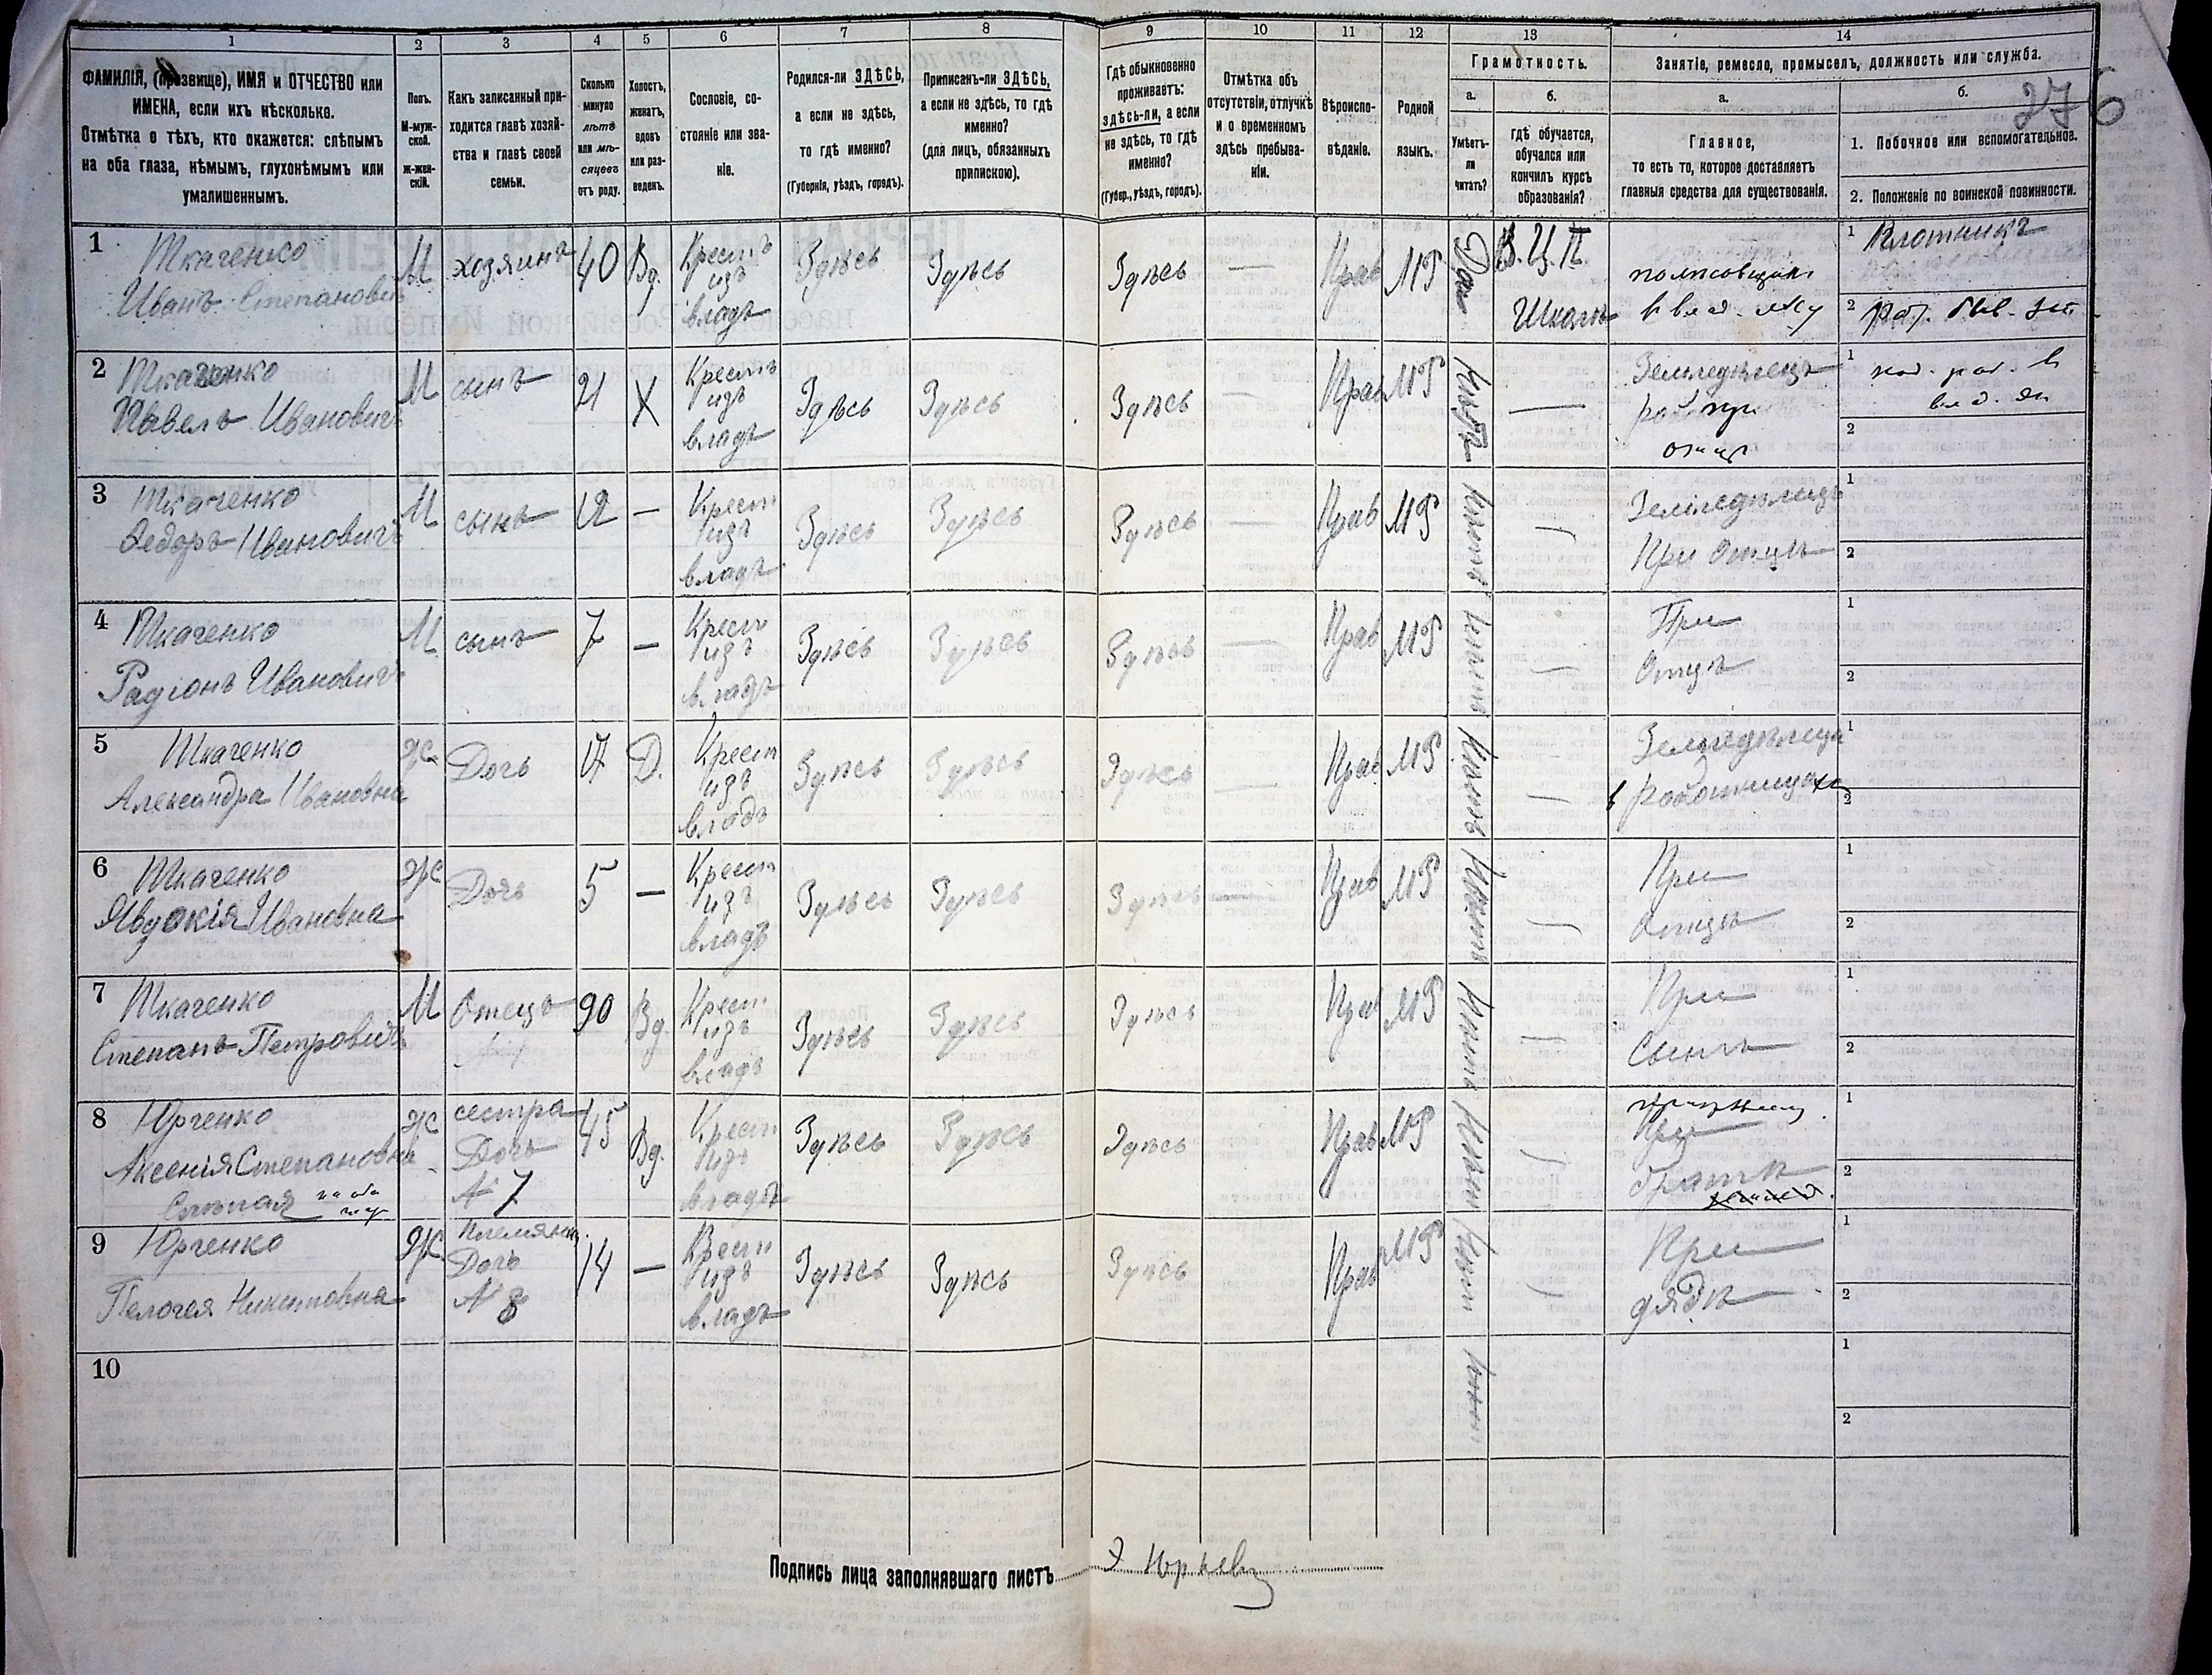 276
1
2
3
4
5
6
7
8
9
10
11
12
13
14
ФАМИЛІЯ, (прозвище), ИМЯ и ОТЧЕСТВО или
ИМЕНА, если ихъ нѣсколько.
Отмѣтка о тѣхъ, кто окажется: слѣпымъ
на оба глаза, нѣмымъ, глухонѣмымъ или
умалишеннымъ.
Полъ.
М-муж-
ской.
Ж-жен-
скій.
Какъ записанный при-
ходится главѣ хозяй-
ства и главѣ своей
семьи.
Сколько
минуло
лѣтъ
или мѣ-
сяцевъ
отъ роду.
Холостъ,
женатъ,
вдовъ
или раз-
веденъ.
Сословіе, со-
стояніе или зва-
ніе.
Родился-ли ЗДѢСЬ,
а если не здѣсь,
то гдѣ именно?
(Губернія, уѣздъ, городъ).
Приписанъ-ли ЗДѢСЬ,
а если не здѣсь, то гдѣ
именно?
(для лицъ, обязанныхъ
припискою).
Гдѣ обыкновенно
проживаетъ:
здѣсь-ли, а если
не здѣсь, то гдѣ
именно?
(Губер., уѣздъ, городъ).
Отмѣтка объ
отсутствіи, отлучкѣ
и о временномъ
здѣсь пребыва-
ніи.
Вѣроиспо-
вѣданіе.
Родной
языкъ.
Грамотность.
а.
Умѣетъ-
ли
читать?
б.
гдѣ обучается,
обучался или
кончилъ курсъ
образованія?
Занятіе, ремесло, промыселъ, должность или служба.
а.
Главное,
то есть то, которое доставляетъ
главныя средства для существованія.
б.
1. Побочное или вспомогательное.
2. Положеніе по воинской повинности.
1 Ткаченко
Иванъ Степановичъ
М хозяинъ 40 Вд. Крест. изъ владѣ Здѣсь Здѣсь Здѣсь — Прав МР Да В. Ц. П.
Школѣ
полѣсовщикъ
в влад. лѣсу
1 Плотникъ
2
2 Ткаченко
Павелъ Ивановичъ
М сынъ 21 Х Крестъ изъ владѣ Здѣсь Здѣсь Здѣсь — Прав МР Нѣтъ —
Земледѣлецъ
при
отцѣ
1
2
3 Ткаченко
Федоръ Ивановичъ
М сынъ 12 — Крест изъ владѣ Здѣсь Здѣсь Здѣсь — Прав МР Нѣтъ —
Земледѣлецъ
При Отцѣ
1
2
4 Ткаченко
Радіонъ Ивановичъ
М сынъ 7 — Крест изъ владѣ Здѣсь Здѣсь Здѣсь — Прав МР Нѣтъ —
При
Отцѣ
1
2
5 Ткаченко
Александра Ивановна
Ж Дочь 17 Д. Крест изъ владѣ Здѣсь Здѣсь Здѣсь — Прав МР Нѣтъ —
в работницахъ
1
2
6 Ткаченко
Явдокія Ивановна
Ж Дочь 5 — Крест изъ владѣ Здѣсь Здѣсь Здѣсь — Прав МР Нѣтъ —
При
Отцѣ
1
2
7 Ткаченко
Степанъ Петровичъ
М Отецъ 90 Вд. Крест изъ владѣ Здѣсь Здѣсь Здѣсь Прав МР Нѣтъ —
При
Сынѣ
1
2
8 Юрченко
Аксенія Степановна
Слѣпая на оба
Ж сестра
Дочь
№ 7
45 Вд. Крест изъ владѣ Здѣсь Здѣсь Здѣсь Прав МР Нѣтъ —
При
братѣ
1
2
9 Юрченко
Пелогея Никитовна
Ж
Дочь
№ 8
14 — Крест изъ владѣ Здѣсь Здѣсь Здѣсь Прав МР Нѣтъ —
При
дядѣ
1
2
10
1
2
Подпись лица заполнявшаго листъ